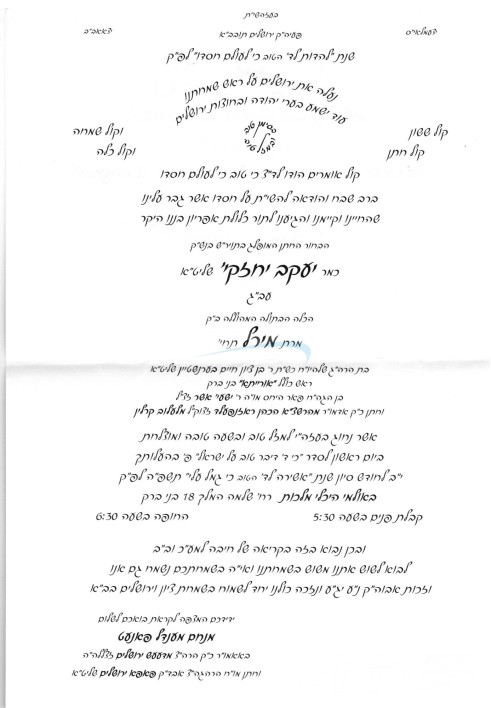 בעזהשי"ת
יצאאב"ב פעיה"ק ירושלים תובב"א יצמלאו"ס
שנת "להודות לד' הטוב כי לעולם חסדו" לפ"ק
נעלה את ירושלים על ראש שמחתנו
עוד ישמע בערי יהודה ובחוצות ירושלים
קול ששון בסימן טוב וקול שמחה
קול חתן ובמזל טוב וקול כלה
קול אומרים הודו לד"צ כי טוב כי לעולם חסדו
ברב שבח והודאה להשי"ת על חסדו אשר גבר עלינו
שהחיינו וקיימנו והגיענו לתור כלולת אפריון בננו היקר
הבחור החתן המופלג בתויר"ש בנש"ק
כמר יעקב יחזקי' שליט"א
עב"ג
הכלה הבתולה המהוללה ב"ק
מרת מירל תחי'
בת הרה"ג שלהיו"ח כש"ת ר' בן ציון חיים בערנשטיין שליט"א
ראש כולל "אורייתא" בני ברק
בן הגה"ח פאר היחס מו"ה ר' ישעי' אשר זצ"ל
וחתן כ"ק אדמו"ר מהרשצ"א הכהן ראזנפעלד זצוק"ל מלעלוב קרלין
אשר נחוג בעזהי"י למזל טוב ובשעה טובה ומוצלחת
ביום ראשון לסדר "כי ד' דיבר טוב על ישראל" פ' בהעלותך
י"ב לחודש סיון שנת "אשירה לד' הטוב כי גמל עלי" תשפ"ה לפ"ק
באולמי היכלי מלכות רח' שלמה המלך 18 בני ברק
קבלת פנים בשעה 5:30 החופה בשעה 6:30
ובכן נבוא בזה בקריאה של חיבה למע"כ וב"ב
לבוא לשוש אתנו משוש בשמחתנו ואי"ה בשמחתכם נשמח גם אנו
וזכות אבוה"ק נ"ע יג"ע ונזכה כולנו יחד לשמוח בשמחת ציון וירושלים בב"א
ידידכם המצפה לקראת בואכם לשלום
מנחם מענדל פאנעט
באאמו"ר כ"ק הרה"צ מדעעש ירושלים זצללה"ה
וחתן מו"ח הרהגה"צ אבד"ק פאפא ירושלים שליט"א